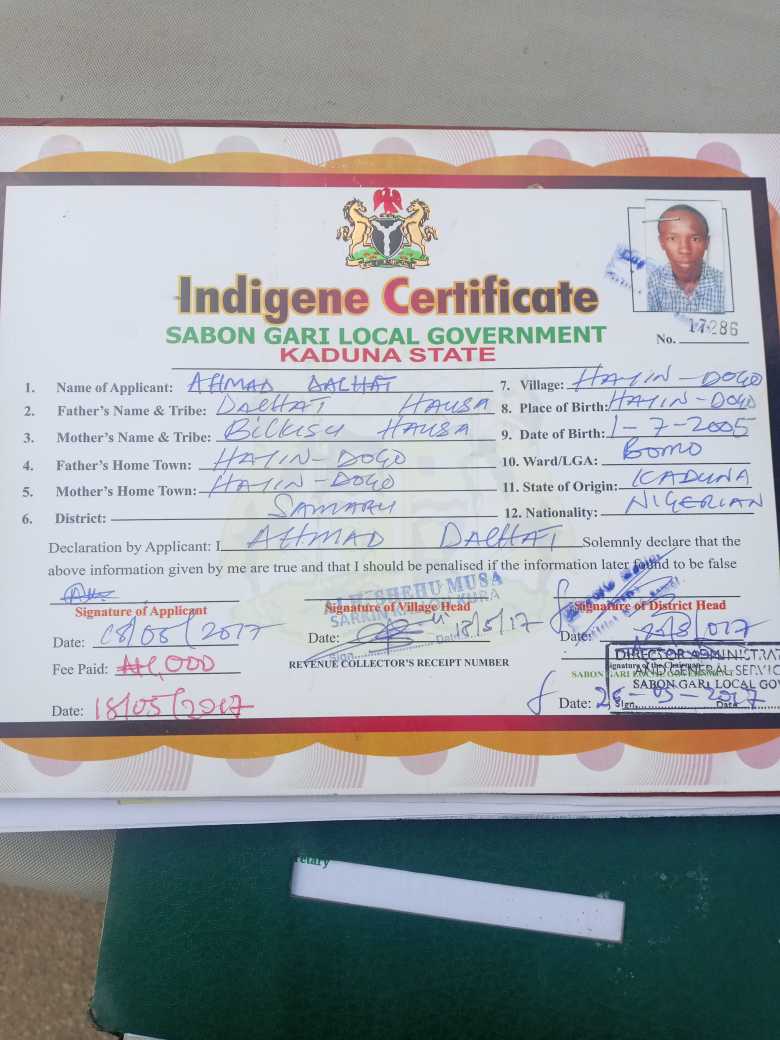 Indigene Certificate
SABON GARI LOCAL GOVERNMENT
KADUNA STATE
No. 17286
1. Name of Applicant: AHMAD DALHAT
2. Father's Name & Tribe: DALHAT HAUSA
3. Mother's Name & Tribe: BILKISU HAUSA
4. Father's Home Town: HAYIN-DOGO
5. Mother's Home Town: HAYIN-DOGO
6. District: SAMARU
7. Village: HAYIN-DOGO
8. Place of Birth: HAYIN-DOGO
9. Date of Birth: 1-7-2005
10. Ward/LGA: BOMO
11. State of Origin: KADUNA
12. Nationality: NIGERIAN
Declaration by Applicant: I AHMAD DALHAT Solemnly declare that the
above information given by me are true and that I should be penalised if the information later found to be false
SHEHU MUSA
SARKIN
Signature of Applicant
Signature of Village Head
Signature of District Head
Date: 18/05/2017
Date: 18/5/17
Sign. Date
Date:
Fee Paid: ₦1,000
REVENUE COLLECTOR'S RECEIPT NUMBER
Signature of the Chairman
SABON GARI LOCAL GOVERNMENT
DIRECTOR ADMINISTRAT
AND GENERAL SERVIC
SABON GARI LOCAL GO
Sign. Date
Date: 18/05/2017
Date: 25-05-2017
retary